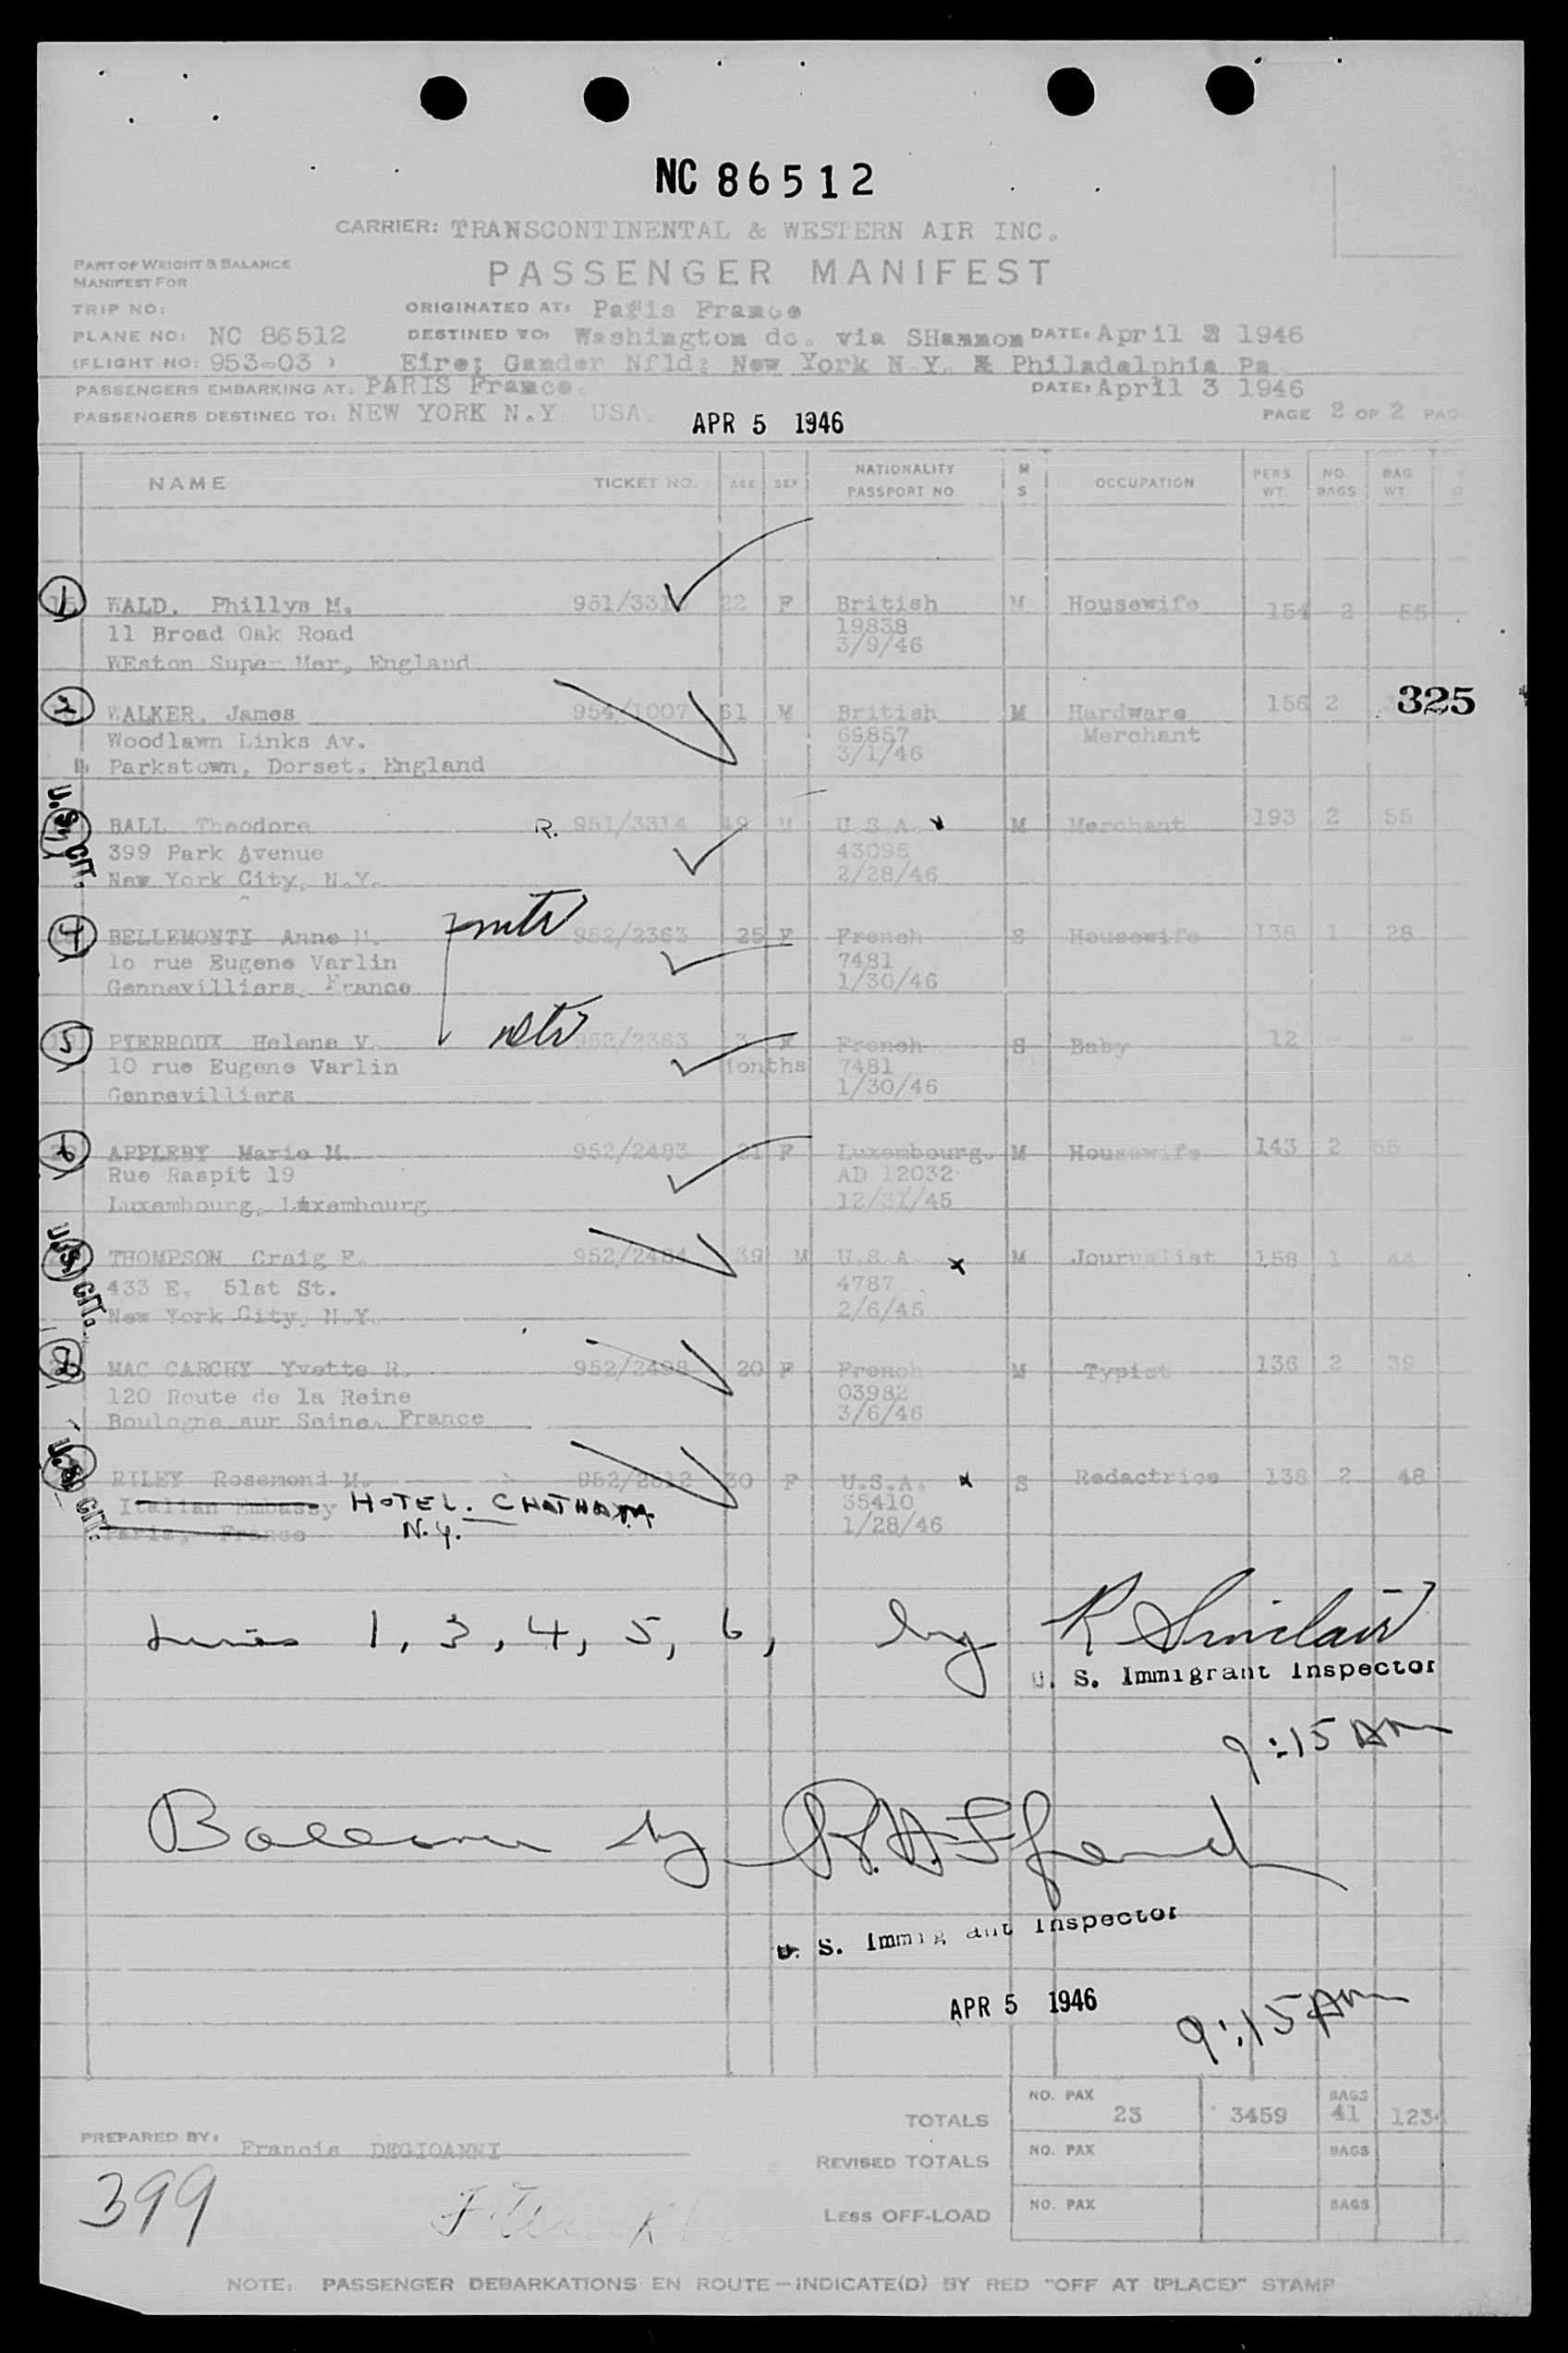 NC 86512
CARRIER: TRANSCONTINENTAL & WESTERN AIR INC.
PART OF WEIGHT & BALANCE
MANIFEST FOR
PASSENGER MANIFEST
TRIP NO: ORIGINATED AT: Paris France
PLANE NO: NC 86512 DESTINED TO: Washington dc. via SHannon DATE: April 2 1946
(FLIGHT NO: 953-03 ) Eire; Gander Nfld; New York N.Y. & Philadelphia Pa
PASSENGERS EMBARKING AT: PARIS France. DATE: April 3 1946
PASSENGERS DESTINED TO: NEW YORK N.Y. USA. APR 5 1946 PAGE 2 OF 2 PAG
NAME TICKET NO. AGE SEX NATIONALITY PASSPORT NO M S OCCUPATION PERS WT. NO. BAGS BAG WT.
1 WALD. Phillys M. 951/331 22 F British M Housewife 154 2 55
11 Broad Oak Road 19838
WEston Super Mar, England 3/9/46
2 WALKER. James 954/1007 51 M British M Hardware 156 2 325
Woodlawn Links Av. 65857 Merchant
Parkstown, Dorset. England 3/1/46
U.S. CIT. BALL Theodore R. 951/3314 49 M U.S.A. M Merchant 193 2 55
399 Park Avenue 43095
New York City, N.Y. 2/28/46
4 BELLEMONTI Anne M. 952/2363 25 F French S Housewife 138 1 28
lo rue Eugene Varlin 7481
Gennevilliers, France 1/30/46
5 PIERROUX Helene V. 952/2363 3 F French S Baby 12 - -
10 rue Eugene Varlin Months 7481
Gennevilliers 1/30/46
6 APPLEBY Marie M. 952/2483 21 F Luxembourg. M Housewife 143 2 55
Rue Raspit 19 AD 12032
Luxembourg, Luxembourg 12/31/45
U.S. CIT. THOMPSON Craig F. 952/2484 39 M U.S.A. x M Journalist 158 1 44
433 E. 51st St. 4787
New York City, N.Y. 2/6/45
MAC CARCHY Yvette R. 952/2498 20 F French M Typist 136 2 39
120 Route de la Reine 03982
Boulogne sur Seine. France 3/6/46
U.S. CIT. RILEY Rosemond M. 952/2612 30 F U.S.A. x S Redactrice 138 2 48
Italian Embassy HOTEL. CHATHAM 35410
Paris, France N.Y. 1/28/46
Lines 1, 3, 4, 5, 6, by R Sinclair
U. S. Immigrant Inspector
9:15 AM
Balance by
U. S. Immigrant Inspector
APR 5 1946 9:15 AM
TOTALS NO. PAX 23 3459 BAGS 41 1234
PREPARED BY: Francis DEGIOANNI
REVISED TOTALS NO. PAX BAGS
399
LESS OFF-LOAD NO. PAX BAGS
NOTE: PASSENGER DEBARKATIONS EN ROUTE — INDICATE(D) BY RED "OFF AT (PLACE)" STAMP